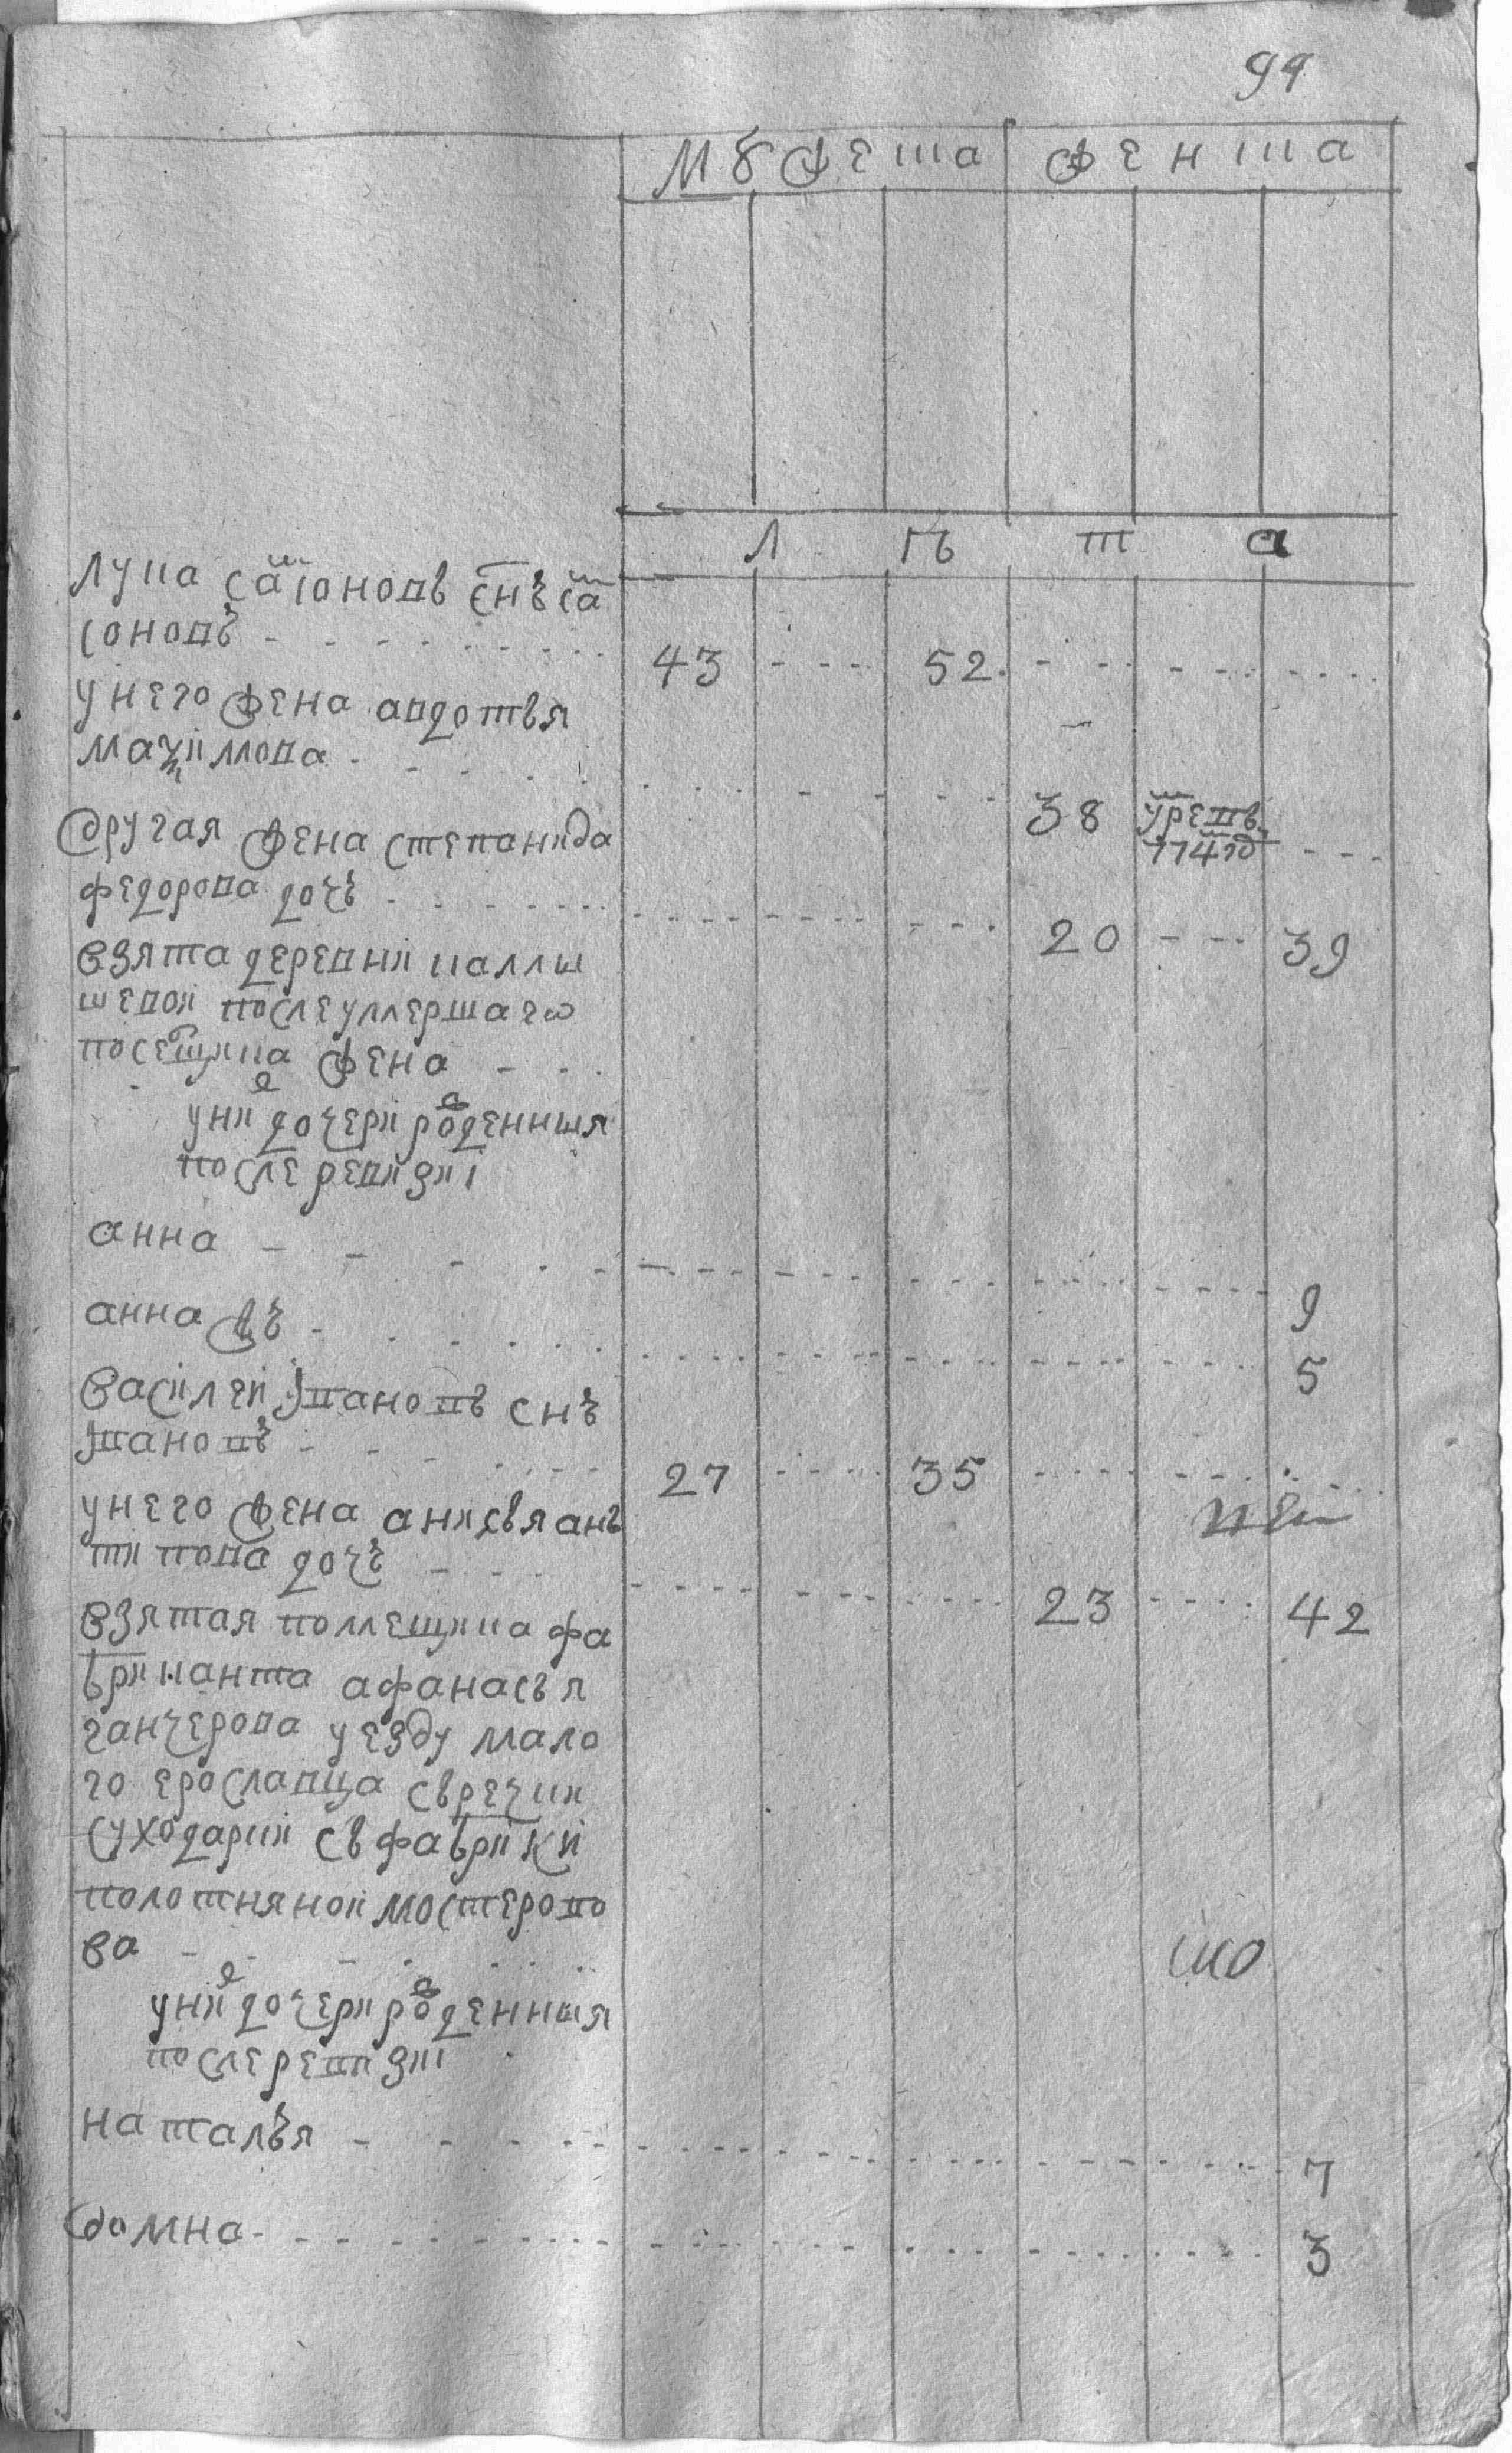 94
МꙋЖЕска Женска
Л Ѣ т а
лука сафоновъ снъ са
фоновъ 43 52
у него жена авдотья
маѯимова 38 умре въ
174 год
другая жена степанида
федорова дочь 20 39
взята деревни камы
шевой после умершаго
посещика жена
у ний дочери рожденныя
после ревизиі
анна 9
анна жъ 5
василей ивановъ снъ
ивановъ 27 35
у него жена анисья ан
типова дочь 23 42
взятая помещика фа
брнканта афанасья
ганчерова уезду мало
го ерославца с речки
суходарки с фабрики
полотняной мостеро
ва
у ний дочери рожденныя
после ревизиі
наталья 7
домна 3